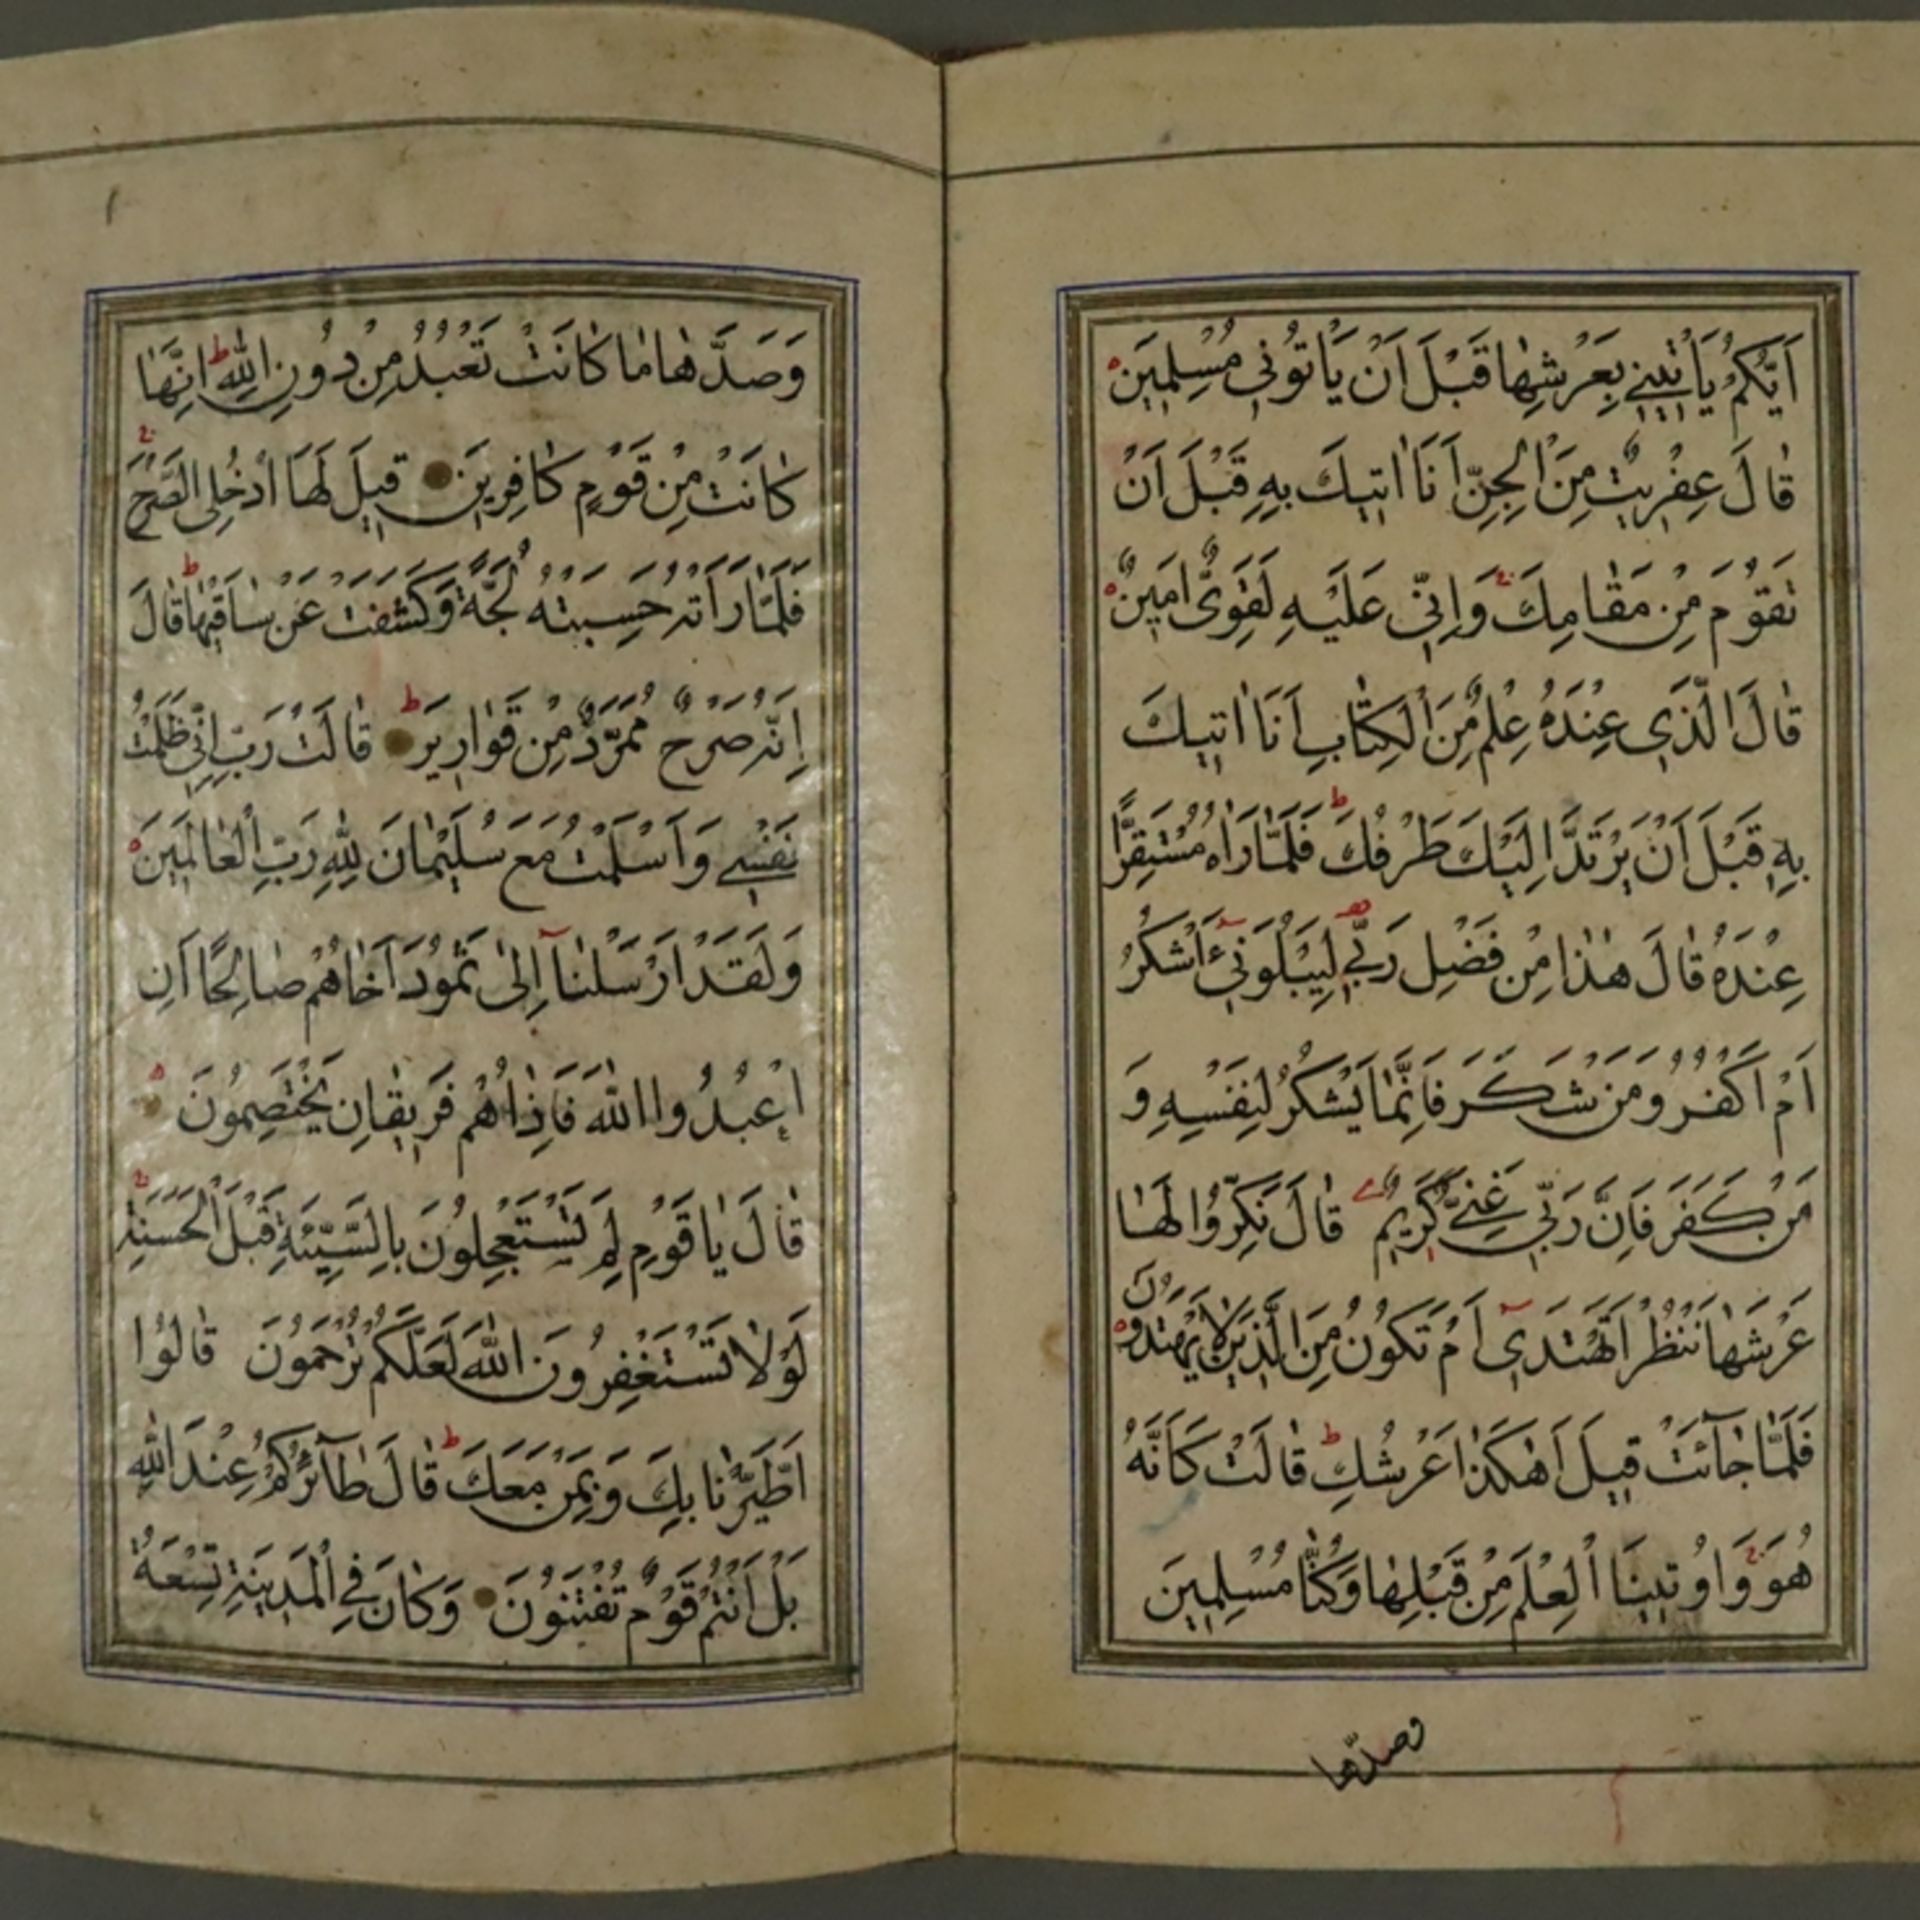 اَيُّكُمْ يَأْتِينِي بِعَرْشِهَا قَبْلَ اَنْ يَأْتُونِي مُسْلِمِينَ
قَالَ عِفْرِيتٌ مِنَ الْجِنِّ اَنَا اٰتِيكَ بِهِ قَبْلَ اَنْ
تَقُومَ مِنْ مَقَامِكَ وَاِنِّي عَلَيْهِ لَقَوِيٌّ اَمِينٌ
قَالَ الَّذِي عِنْدَهُ عِلْمٌ مِنَ الْكِتَابِ اَنَا اٰتِيكَ
بِهِ قَبْلَ اَنْ يَرْتَدَّ اِلَيْكَ طَرْفُكَ فَلَمَّا رَاٰهُ مُسْتَقِرًّا
عِنْدَهُ قَالَ هٰذَا مِنْ فَضْلِ رَبِّي لِيَبْلُوَنِي ءَاَشْكُرُ
اَمْ اَكْفُرُ وَمَنْ شَكَرَ فَاِنَّمَا يَشْكُرُ لِنَفْسِهِ وَ
مَنْ كَفَرَ فَاِنَّ رَبِّي غَنِيٌّ كَرِيمٌ قَالَ نَكِّرُوا لَهَا
عَرْشَهَا نَنْظُرْ اَتَهْتَدِي اَمْ تَكُونُ مِنَ الَّذِينَ لَا يَهْتَدُونَ
فَلَمَّا جَآئَتْ قِيلَ اَهٰكَذَا عَرْشُكِ قَالَتْ كَاَنَّهُ
هُوَ وَاُوتِينَا الْعِلْمَ مِنْ قَبْلِهَا وَكُنَّا مُسْلِمِينَ
وصدّها
وَصَدَّهَا مَا كَانَتْ تَعْبُدُ مِنْ دُونِ اللّٰهِ اِنَّهَا
كَانَتْ مِنْ قَوْمٍ كَافِرِينَ قِيلَ لَهَا ادْخُلِي الصَّرْحَ
فَلَمَّا رَاَتْهُ حَسِبَتْهُ لُجَّةً وَكَشَفَتْ عَنْ سَاقَيْهَا قَالَ
اِنَّهُ صَرْحٌ مُمَرَّدٌ مِنْ قَوَارِيرَ قَالَتْ رَبِّ اِنِّي ظَلَمْتُ
نَفْسِي وَاَسْلَمْتُ مَعَ سُلَيْمَانَ لِلّٰهِ رَبِّ الْعَالَمِينَ
وَلَقَدْ اَرْسَلْنَا اِلٰى ثَمُودَ اَخَاهُمْ صَالِحًا اَنِ
اعْبُدُوا اللّٰهَ فَاِذَا هُمْ فَرِيقَانِ يَخْتَصِمُونَ
قَالَ يَا قَوْمِ لِمَ تَسْتَعْجِلُونَ بِالسَّيِّئَةِ قَبْلَ الْحَسَنَةِ
لَوْلَا تَسْتَغْفِرُونَ اللّٰهَ لَعَلَّكُمْ تُرْحَمُونَ قَالُوا
اطَّيَّرْنَا بِكَ وَبِمَنْ مَعَكَ قَالَ طَآئِرُكُمْ عِنْدَ اللّٰهِ
بَلْ اَنْتُمْ قَوْمٌ تُفْتَنُونَ وَكَانَ فِي الْمَدِينَةِ تِسْعَةُ